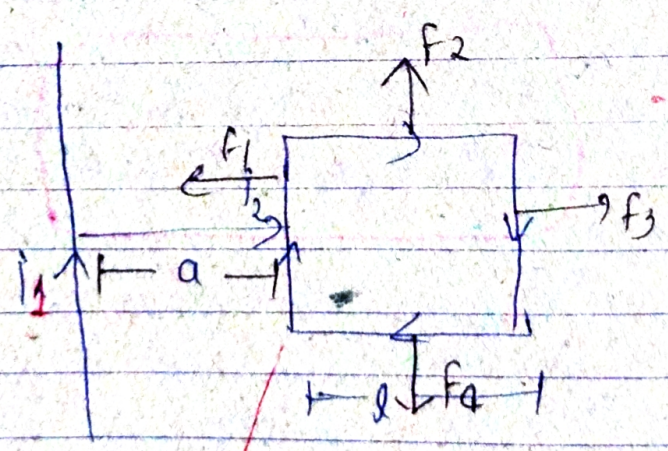 F2
F1
i2
F3
i1
a
l
F4